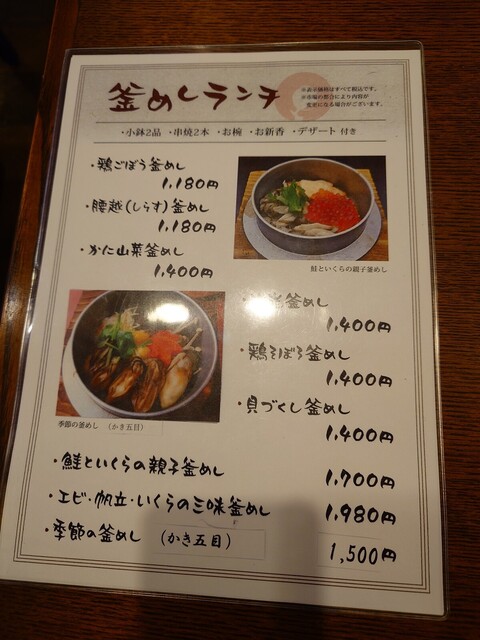 釜めしランチ
※表示価格はすべて税込です。
※市場の都合により内容が
変更になる場合がございます。
・小鉢2品 ・串焼2本 ・お椀 ・お新香 ・デザート 付き
・鶏ごぼう釜めし
1,180円
・腰越(しらす)釜めし
1,180円
・かに山菜釜めし
1,400円
鮭といくらの親子釜めし
釜めし
1,400円
・鶏そぼろ釜めし
1,400円
・貝づくし釜めし
1,400円
季節の釜めし (かき五目)
・鮭といくらの親子釜めし
1,700円
・エビ・帆立・いくらの三味釜めし
1,980円
・季節の釜めし (かき五目)
1,500円